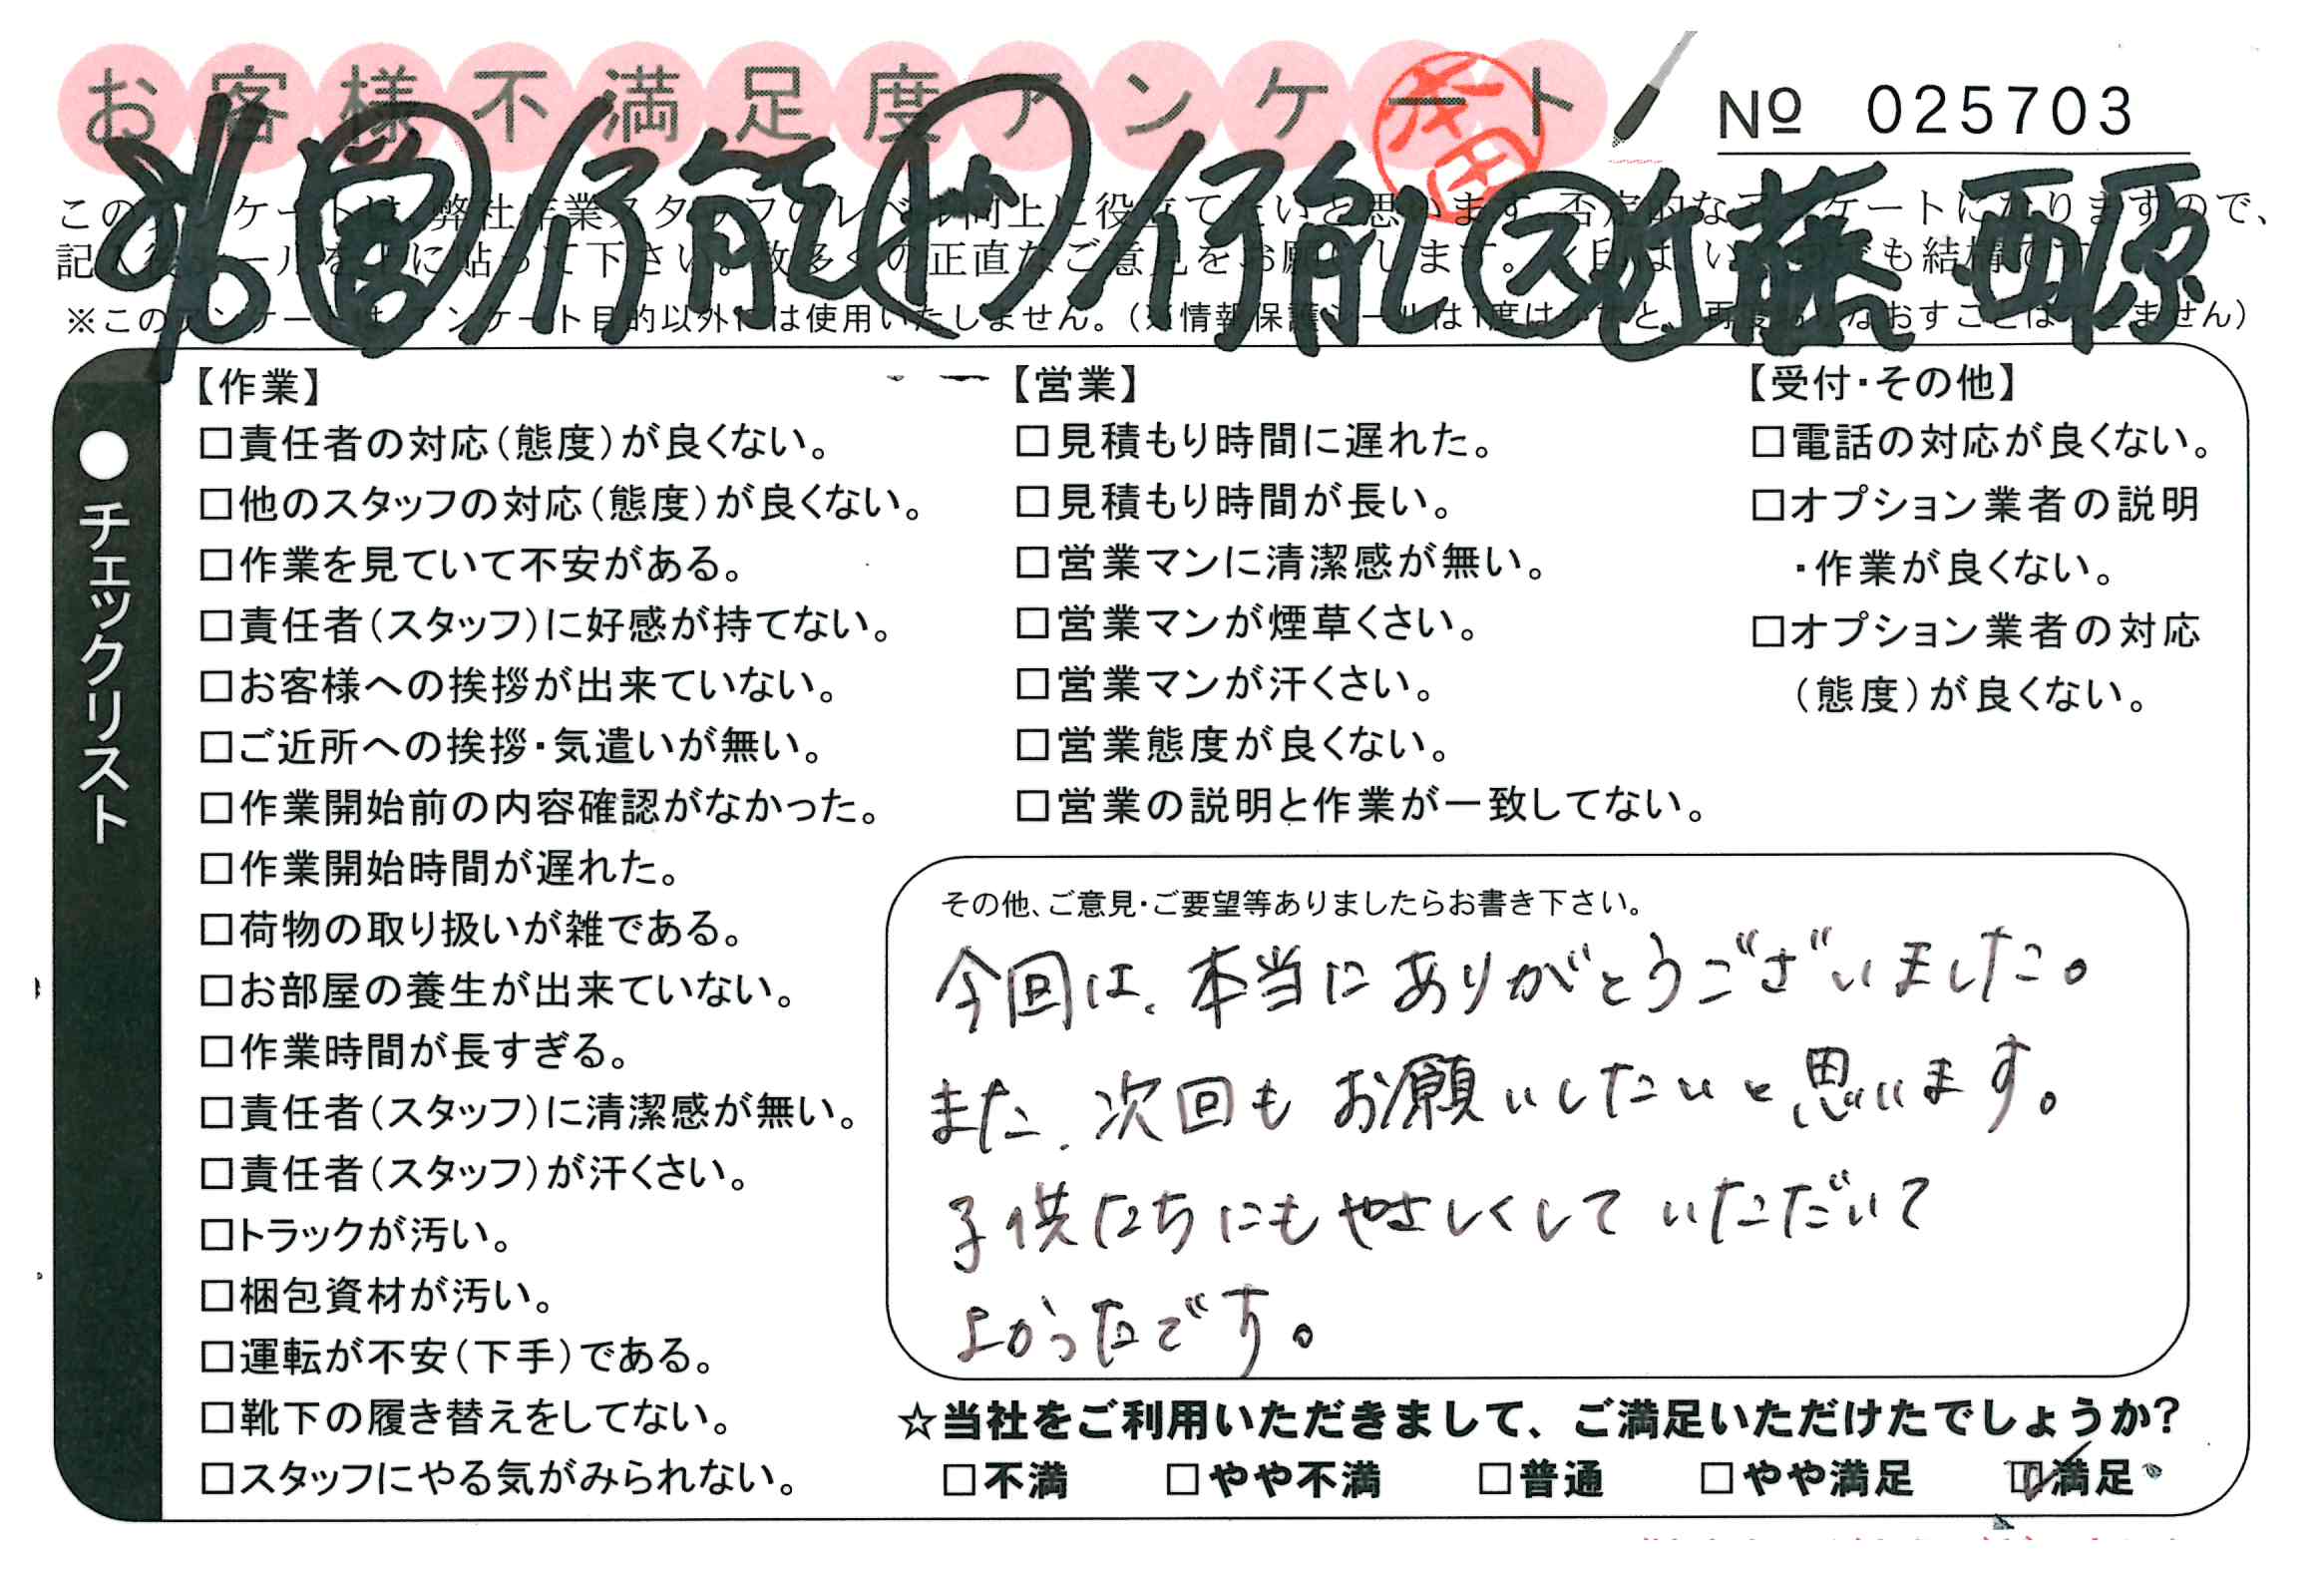 お客様不満足度アンケート
No 025703
営 行 能 作 行 能 ス 佐藤 西原
このアンケートは、弊社作業スタッフのレベル向上に役立てたいと思います。否定的なアンケートになりますので、
記入後シールを上に貼って下さい。数多くの正直なご意見をお願いします。
※このアンケートは、アンケート目的以外には使用いたしません。(※情報保護シールは1度はがすと、再度貼りなおすことはできません)
●チェックリスト
【作業】
□責任者の対応(態度)が良くない。
□他のスタッフの対応(態度)が良くない。
□作業を見ていて不安がある。
□責任者(スタッフ)に好感が持てない。
□お客様への挨拶が出来ていない。
□ご近所への挨拶・気遣いが無い。
□作業開始前の内容確認がなかった。
□作業開始時間が遅れた。
□荷物の取り扱いが雑である。
□お部屋の養生が出来ていない。
□作業時間が長すぎる。
□責任者(スタッフ)に清潔感が無い。
□責任者(スタッフ)が汗くさい。
□トラックが汚い。
□梱包資材が汚い。
□運転が不安(下手)である。
□靴下の履き替えをしてない。
□スタッフにやる気がみられない。
【営業】
□見積もり時間に遅れた。
□見積もり時間が長い。
□営業マンに清潔感が無い。
□営業マンが煙草くさい。
□営業マンが汗くさい。
□営業態度が良くない。
□営業の説明と作業が一致してない。
【受付・その他】
□電話の対応が良くない。
□オプション業者の説明
・作業が良くない。
□オプション業者の対応
(態度)が良くない。
その他、ご意見・ご要望等ありましたらお書き下さい。
今回は、本当にありがとうございました。
また、次回もお願いしたいと思います。
子供たちにもやさしくしていただいて
よかったです。
☆当社をご利用いただきまして、ご満足いただけたでしょうか?
□不満 □やや不満 □普通 □やや満足 ☑満足